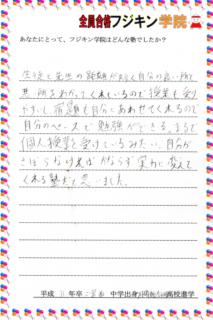 全員合格フジキン学院
あなたにとって、フジキン学院はどんな塾でしたか？
生徒と先生の距離が近く自分の良い所
悪い所をわかってくれているので授業も受け
やすく、宿題も自分にあわせてくれるので
自分のペースで勉強ができる。まるで
個人授業を受けているみたい。自分が
さぼらなければかならず実力に変えて
くれる塾だと思いました。
平成 年卒 中学出身 高校進学